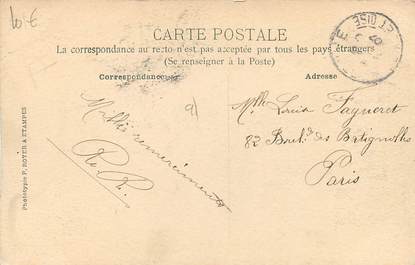 10 €
CARTE POSTALE
La correspondance au recto n'est pas acceptée par tous les pays étrangers
(Se renseigner à la Poste)
Correspondance
Adresse
91
Mille remerciements
Mlle Lucia Fayneret
82 Bould. des Batignolles
Paris
Phototypie P. ROYER A ETAMPES
ET OISE